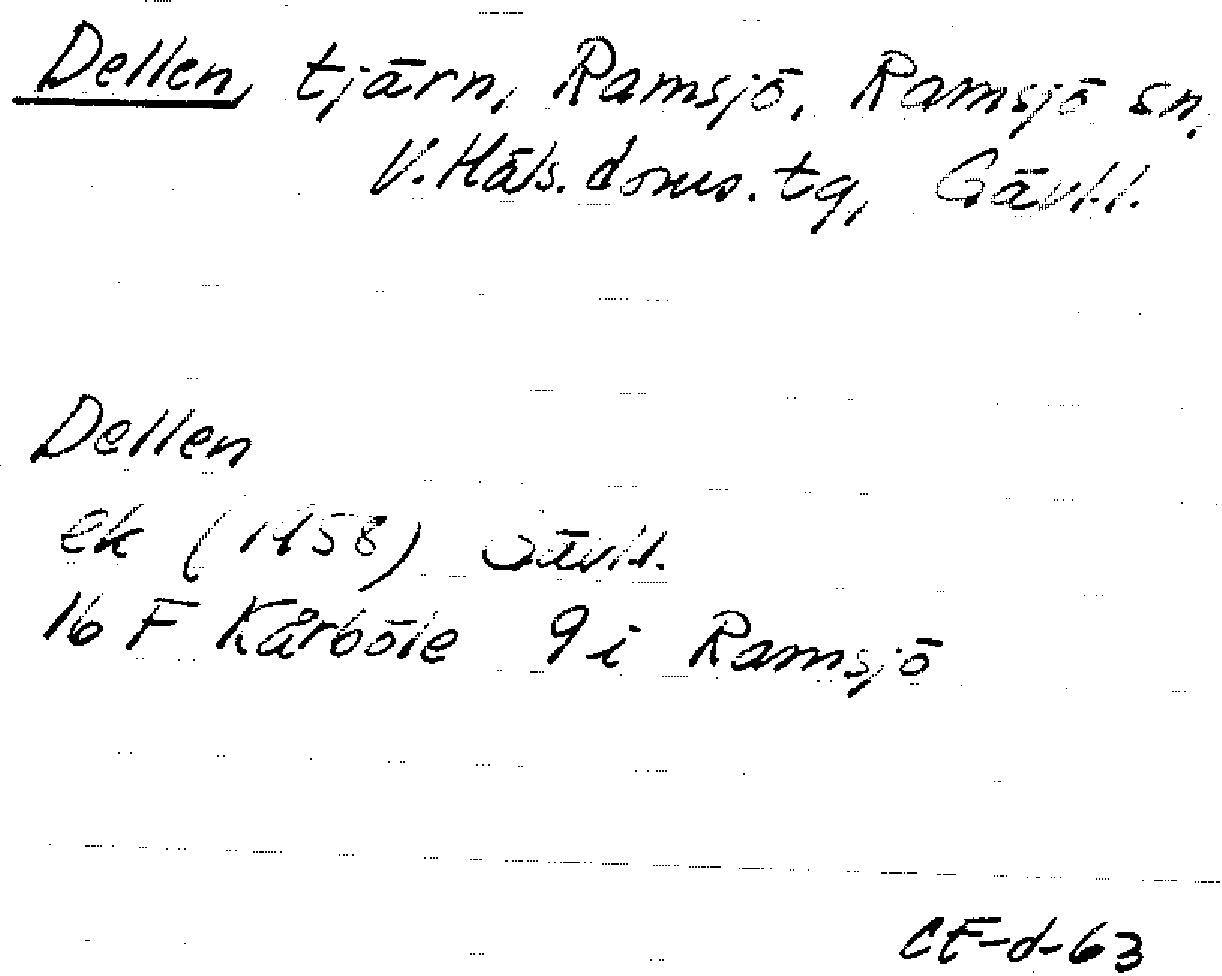 Dellen, tjärn, Ramsjö, Ramsjö sn,
V. Häls. doms. tg, Gävl.l.
Dellen
ek (1958) Gävl.l.
16 F Kårböle 9 i Ramsjö
CE-d-63